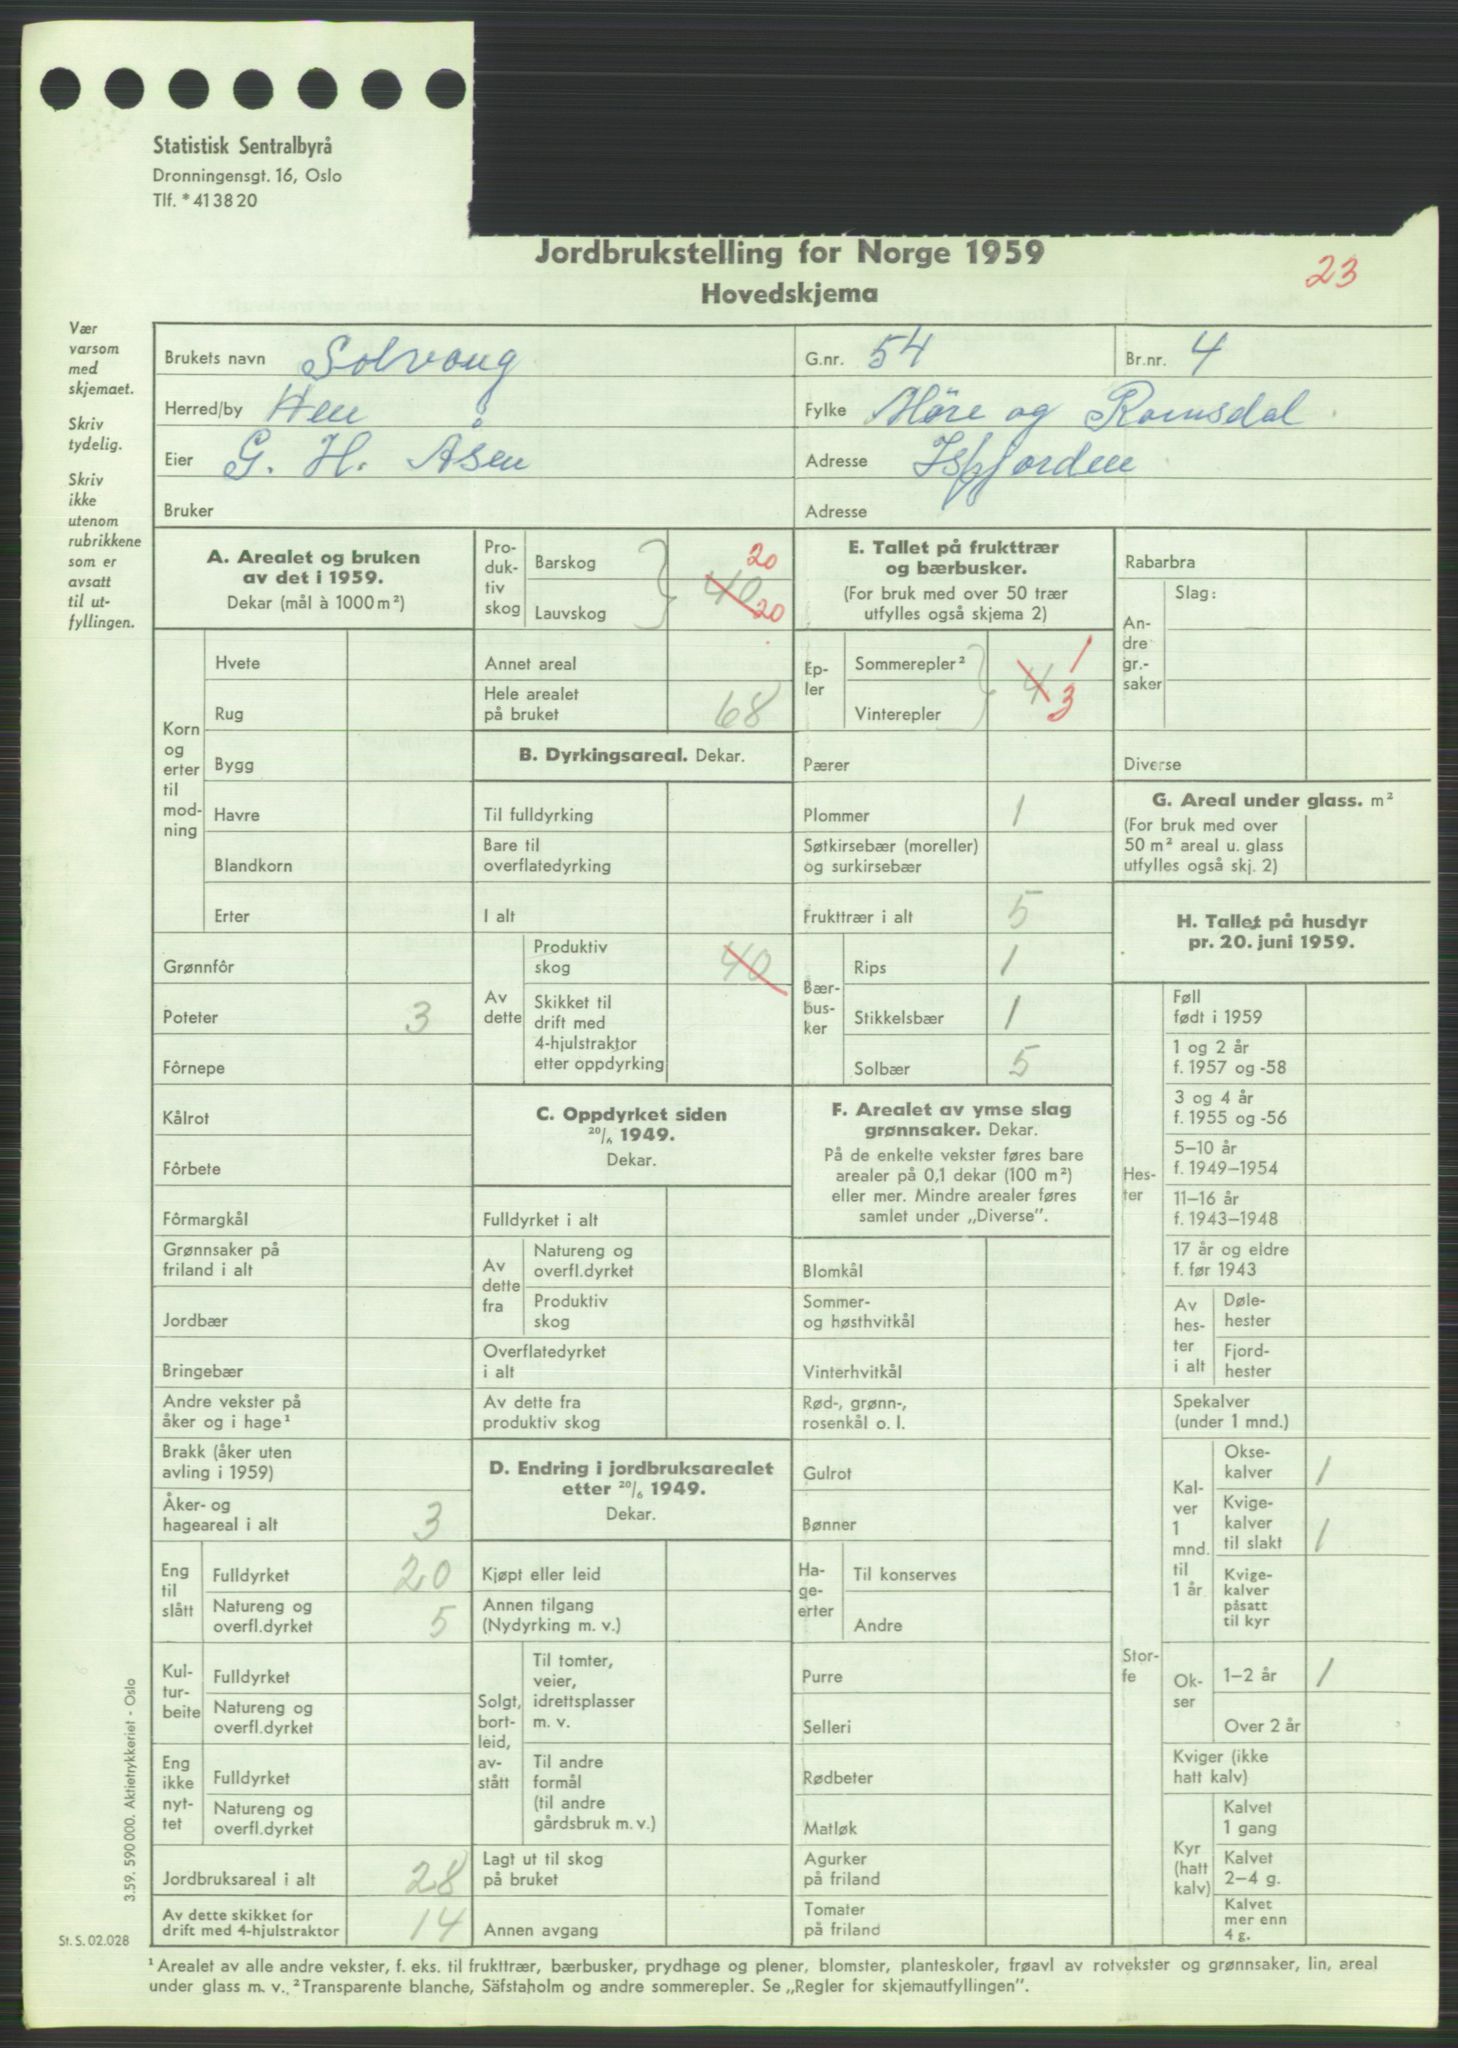 Statistisk Sentralbyrå
Dronningensgt. 16, Oslo
Tlf. * 41 38 20
Jordbrukstelling for Norge 1959
Hovedskjema
23
Vær
varsom
med
skjemaet.
Skriv
tydelig.
Skriv
ikke
utenom
rubrikkene
som er
avsatt
til ut-
fyllingen.
Brukets navn Solvang G.nr. 54 Br.nr. 4
Herred/by Hen Fylke Møre og Romsdal
Eier G. H. Åsen Adresse Isfjorden
Bruker Adresse
A. Arealet og bruken
av det i 1959.
Dekar (mål à 1000 m²)
Korn
og
erter
til
mod-
ning
Hvete
Rug
Bygg
Havre
Blandkorn
Erter
Grønnfôr
Poteter 3
Fôrnepe
Kålrot
Fôrbete
Fôrmargkål
Grønnsaker på
friland i alt
Jordbær
Bringebær
Andre vekster på
åker og i hage¹
Brakk (åker uten
avling i 1959)
Åker- og
hageareal i alt 3
Eng
til
slått
Fulldyrket 20
Natureng og
overfl.dyrket 5
Kul-
tur-
beite
Fulldyrket
Natureng og
overfl.dyrket
Eng
ikke
nyt-
tet
Fulldyrket
Natureng og
overfl.dyrket
Jordbruksareal i alt 28
Av dette skikket for
drift med 4-hjulstraktor 14
Pro-
duk-
tiv
skog
Barskog 20
40
Lauvskog 20
Annet areal
Hele arealet
på bruket 68
B. Dyrkingsareal. Dekar.
Til fulldyrking
Bare til
overflatedyrking
I alt
Av
dette
Produktiv
skog 40
Skikket til
drift med
4-hjulstraktor
etter oppdyrking
C. Oppdyrket siden
20/6 1949.
Dekar.
Fulldyrket i alt
Av
dette
fra
Natureng og
overfl.dyrket
Produktiv
skog
Overflatedyrket
i alt
Av dette fra
produktiv skog
D. Endring i jordbruksarealet
etter 20/6 1949.
Dekar.
Kjøpt eller leid
Annen tilgang
(Nydyrking m. v.)
Solgt,
bort-
leid,
av-
stått
Til tomter,
veier,
idrettsplasser
m. v.
Til andre
formål
(til andre
gårdsbruk m. v.)
Lagt ut til skog
på bruket
Annen avgang
E. Tallet på frukttrær
og bærbusker.
(For bruk med over 50 trær
utfylles også skjema 2)
Ep-
ler
Sommerepler² 1
4
Vinterepler 3
Pærer
Plommer 1
Søtkirsebær (moreller)
og surkirsebær
Frukttrær i alt 5
Bær-
bus-
ker
Rips 1
Stikkelsbær 1
Solbær 5
F. Arealet av ymse slag
grønnsaker. Dekar.
På de enkelte vekster føres bare
arealer på 0,1 dekar (100 m²)
eller mer. Mindre arealer føres
samlet under „Diverse”.
Blomkål
Sommer-
og høsthvitkål
Vinterhvitkål
Rød-, grønn-,
rosenkål o. l.
Gulrot
Bønner
Ha-
ge-
erter
Til konserves
Andre
Purre
Selleri
Rødbeter
Matløk
Agurker
på friland
Tomater
på friland
Rabarbra
An-
dre
gr.-
saker
Slag:
Diverse
G. Areal under glass. m²
(For bruk med over
50 m² areal u. glass
utfylles også skj. 2)
H. Tallet på husdyr
pr. 20. juni 1959.
Hes-
ter
Føll
født i 1959
1 og 2 år
f. 1957 og -58
3 og 4 år
f. 1955 og -56
5–10 år
f. 1949–1954
11–16 år
f. 1943–1948
17 år og eldre
f. før 1943
Av
hes-
ter
i alt
Døle-
hester
Fjord-
hester
Stor-
fe
Spekalver
(under 1 mnd.)
Kal-
ver
1
mnd.
til
1 år
Okse-
kalver 1
Kvige-
kalver
til slakt 1
Kvige-
kalver
påsatt
til kyr
Ok-
ser
1–2 år 1
Over 2 år
Kviger (ikke
hatt kalv)
Kyr
(hatt
kalv)
Kalvet
1 gang
Kalvet
2–4 g.
Kalvet
mer enn
4 g.
3.59. 590 000. Aktietrykkeriet - Oslo
St. S. 02.028
¹ Arealet av alle andre vekster, f. eks. til frukttrær, bærbusker, prydhage og plener, blomster, planteskoler, frøavl av rotvekster og grønnsaker, lin, areal
under glass m. v. ² Transparente blanche, Säfstaholm og andre sommerepler. Se „Regler for skjemautfyllingen”.